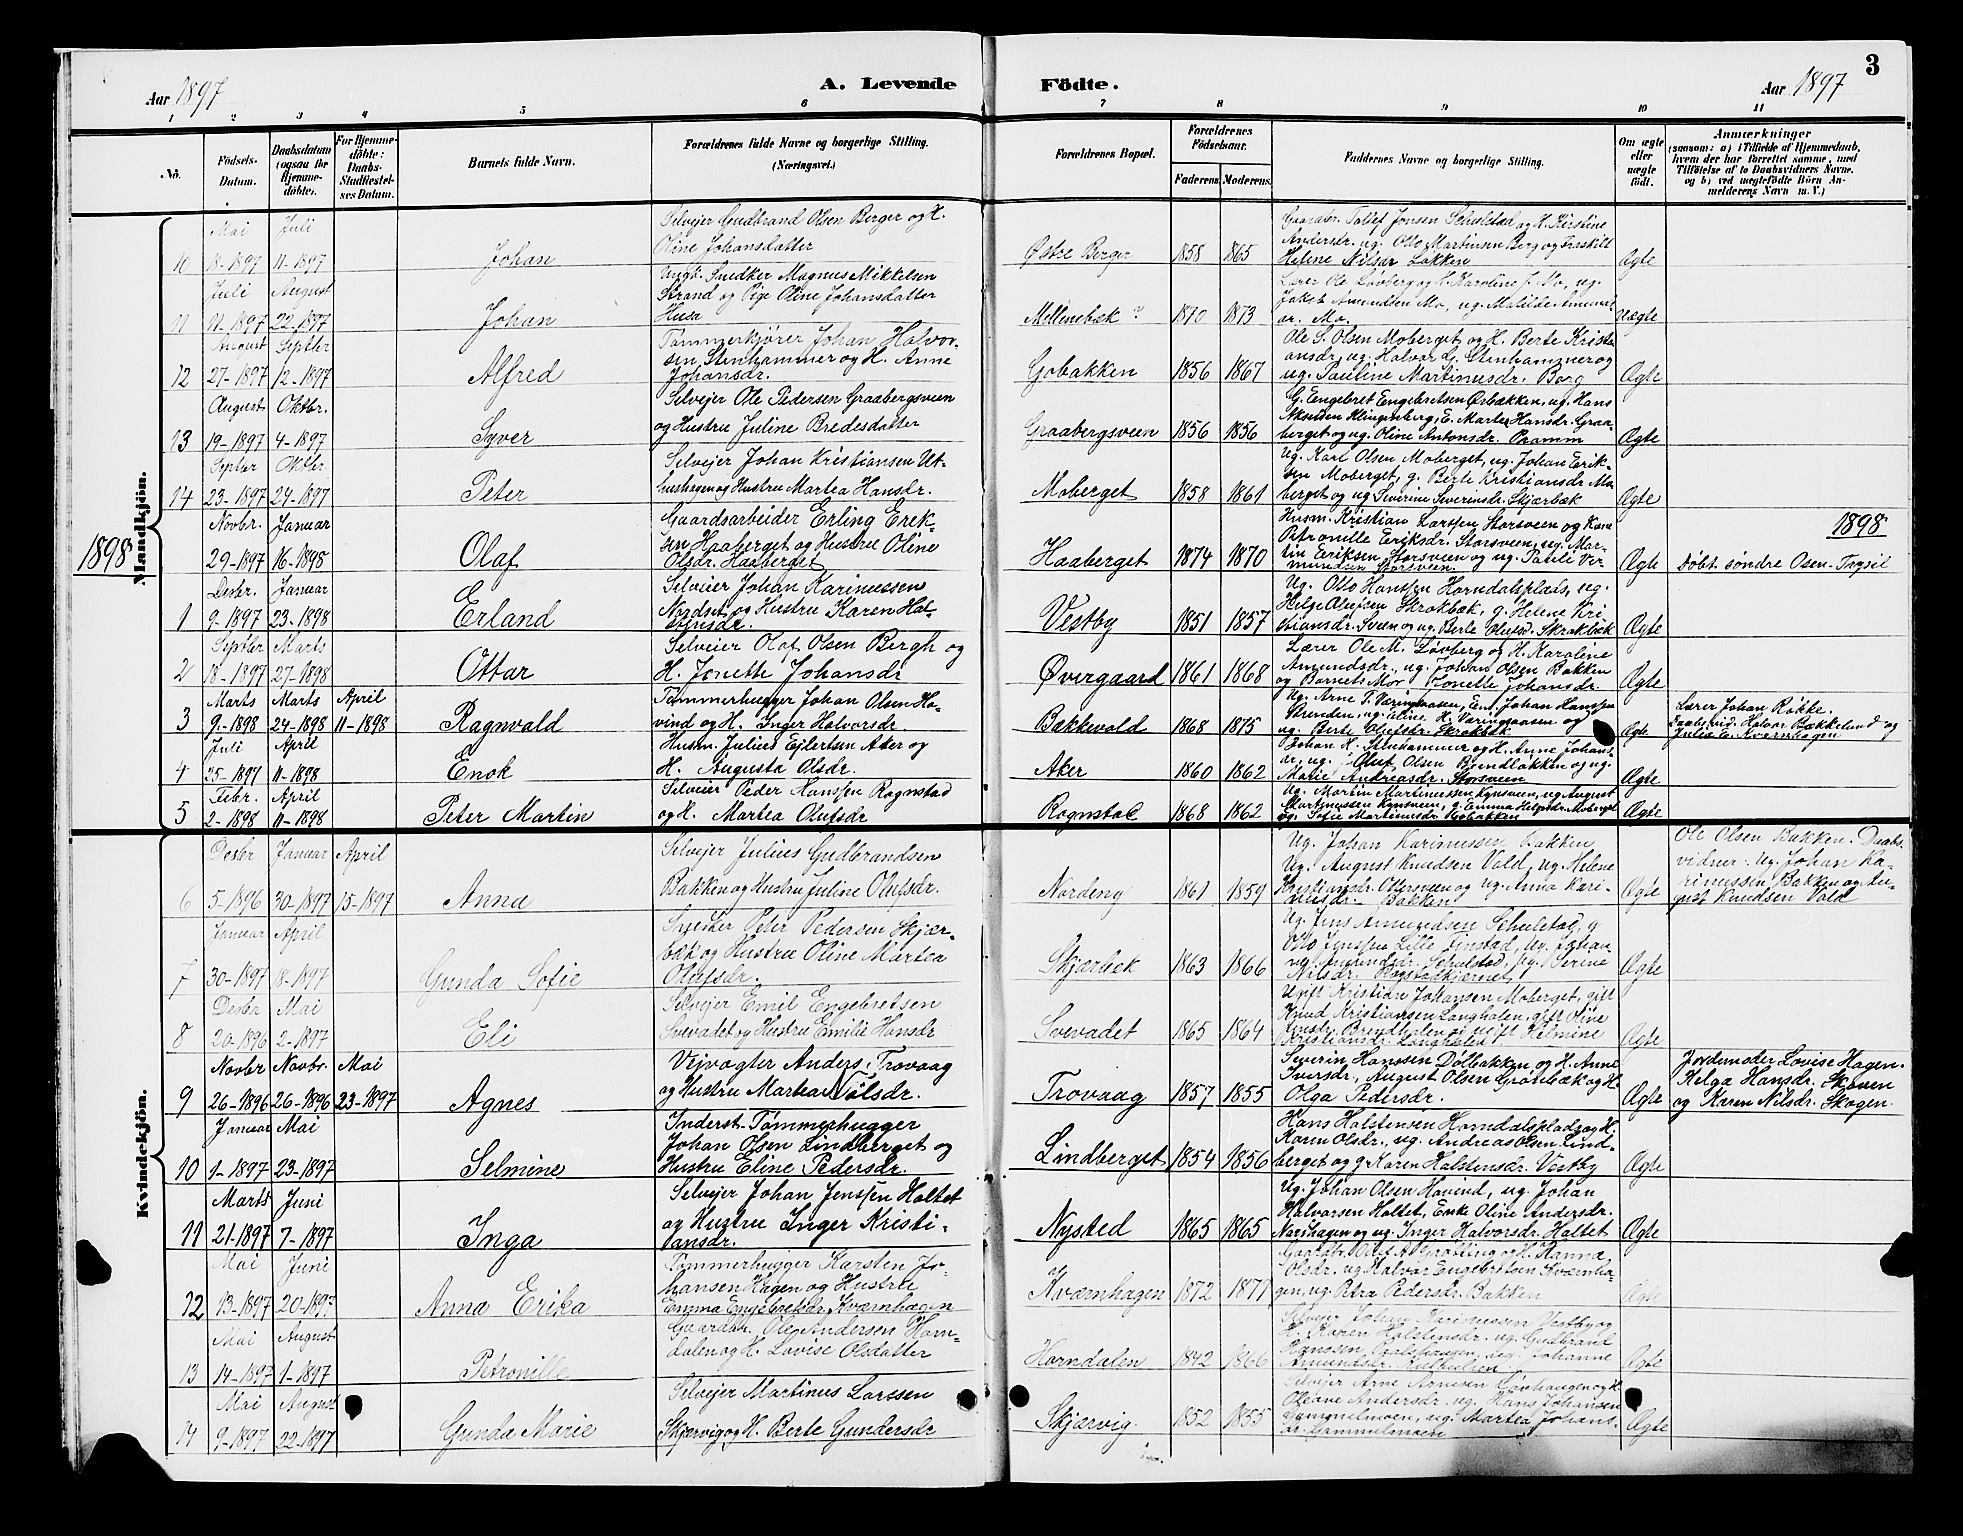 3
Aar 1897
A. Levende
Födte.
Aar 1897
1 2 3 4 5 6 7 8 9 10 11
No.
Födsels-Datum.
Daabsdatum (ogsaa for Hjemme-döbte).
For Hjemme-döbte: Daabs-Stadfæstelses Datum.
Barnets fulde Navn.
Forældrenes fulde Navne og borgerlige Stilling. (Næringsvei.)
Forældrenes Bopæl.
Forældrenes Födselsaar.
Faderens. Moderens.
Faddernes Navne og borgerlige Stilling.
Om ægte eller uægte födt.
Anmærkninger
(saasom: a) i Tilfælde af Hjemmedaab, hvem der har forrettet samme, med Tilföielse af to Daabsvidners Navne, og b) ved uægtefödte Börn Anmelderens Navn m. V.)
Mandkjön.
10 Mai 18-1897 Juli 11-1897 Johan
Selvejer Gudbrand Olsen Berger og H.
Oline Johansdatter
Østre Berger 1858 1865
Gaardbr. Tollef Jonsen Schulstad og H. Kristine
Andersdr. ug. Otto Martinsen Berg og
Helene Nilsdr Løkken
Ægte
11 Juli 11-1897 August 22-1897 Johan
Ungk. Snedker Magnus Mikkelsen
Strand og Pige Oline Johansdatter
Husa
Mellenebæk ? 1870 1873
Lærer Ole Løvberg og H. Karoline f. Mo, ug.
Jakob Amundsen Mo, ug. Matilde Amunds-
dr. Mo.
Uægte
12 August 27-1897 Septbr 12-1897 Alfred
Tømmerkjører Johan Halvor-
sen Stenhammer og H. Anne
Johansdr.
Gobakken 1856 1867
Ole S. Olsen Moberget og H. Berte Kristi-
ansdr, ug. Halvard G. Stenhammer og
ug. Pauline Martinusdr. Berg
Ægte
13 August 19-1897 Oktbr. 4-1897 Syver
Selvejer Ole Pedersen Graabergsveen
og Hustru Juline Bredesdatter
Graabergsveen 1856 1856
G. Engebret Engebretsen Ørbækken, ug. Hans
Klingenberg, E. Marte Hansdr. Graa-
berget og ug. Oline Antonsdr. Pramm
Ægte
14 Septbr 23-1897 Oktbr 24-1897 Peter
Selvejer Johan Kristiansen Ut-
hushagen og Hustru Martea Hansdr.
Moberget 1858 1861
Ug. Karl Olsen Moberget, ug. Johan Eerik-
sen Moberget, g. Berte Kristiansdr Mo-
berget og ug Severine Severinsdr. Skjærbæk
Ægte
1898 Novbr. 29-1897 Januar 16-1898 Olaf
Gaardsarbeider Erling Erek-
sen Haaberget og Hustru Oline
Olsdr. Haaberget
Haaberget 1874 1870
Husm. Kristian Larssen Storsveen og Kone
Petronille Eeriksdr. Storsveen, ug. Mar-
tin Eeriksen Storsveen og ug. Pauli Ver
mundsen Storsveen
Ægte
1898
Døbt søndre Osen-Trysil
1 Desbr. 9-1897 Januar 23-1898 Erland
Selveier Johan Karinussen
Nordset og Hustru Karen Hal-
stensdr.
Vestby 1851 1857
Ug. Otto Hanssen Horndalsplads, ug.
Helge Olufsen Skrokbæk, g. Helene Kri-
stiansdr. Sveen og ug. Berte Olufsd. Skrokbæk
Ægte
2 Septbr 18-1897 Marts 27-1898 Ottar
Selveier Olaf Olsen Bergh og
H. Jonette Johansdr
Øvergaard 1861 1868
Lærer Ole M. Løvberg og H. Karoline
Amundsdr., ug. Johan Olsen Bakken
og Barnets Mor Jonette Johansdr.
Ægte
3 Marts 9-1898 Marts 24-1898 April 11-1898 Ragnvald
Tømmerhugger Johan Olsen Ho-
vind og H. Inger Halvorsdr.
Bakkevold 1868 1875
Ug. Arne P. Væringsaasen, Johan Hanssen
Strenden, ug. Eline H. Væringsaasen og
ug. Berte Olufsdr. Skrokbæk
Ægte
Lærer Johan Røkke.
Daabsvid. Halvar Bækkelund og
Julia E. Kvernhagen
4 Juli 25-1897 April 11-1898 Enok
Husm. Julius Ejlertsen Aker og
H. Augusta Olsdr.
Aker 1860 1862
Johan H. Stenhammer og H. Anne Johans-
dr, ug. Oluf Olsen Brendløkken og ug.
Marie Andreasdr. Storsveen
Ægte
5 Febr. 2-1898 April 11-1898 Peter Martin
Selveier Peder Hanssen Rognstad
og H. Martea Olufsdr
Rognstad 1868 1862
Ug. Martin Martinussen Kynsveen, ug August
Martinussen Kynsveen, g. Emma Helgesdr. Moberget
og Sofie Martinusdr.
Ægte
Kvindekjön.
6 Desbr 5-1896 Januar 30-1897 April 15-1897 Anna
Selvejer Julius Gudbrandsen
Bakken og Hustru Juline Olufsdr.
Nordeng 1861 1859
Ug. Johan Karinussen Bakken
Ug. August Knudsen Vold, ug. Helene
Kristiansdr. Ottersveen og ug. Anna Kari-
nusdr. Bakken
Ægte
Ole Olsen Bakken. Daabs-
vidner. ug. Johan Ka-
rinussen Bakken og Au-
gust Knudsen Vold
7 Januar 30-1897 April 18-1897 Gunda Sofie
Snedker Peter Pedersen Skjær-
bæk og Hustru Oline Martea
Olufsdr.
Skjærbæk 1863 1866
Ug. Jens Amundsen Schulstad, g
Otto Jenssen Lille Finstad, ug. Johan
ug. Amundsdr. Schulstad, ug. Serine
Nilsdr. Rogstadkjernet
Ægte
8 Desbr 20-1896 Mai 2-1897 Eli
Selvejer Emil Engebretsen
Svevadet og Hustru Emilie Hansdr
Svevadet 1865 1864
Ugift Kristian Johansen Moberget, gift
Knud Kristiansen Langhalen, gift Oline
Brendhalen og ugift Helmine
Kristiansdr. Langhalen
Ægte
9 Novbr 26-1896 Novbr. 26-1896 Mai 23-1897 Agnes
Vejvogter Anders Trovaag
og Hustru Martea Nilsdr.
Trovaag 1857 1855
Severin Hanssen Dølbakken og H. Anne
Iversdr, August Olsen Grønbæk og H.
Olga Pedersdr.
Ægte
Jordemoder Lovise Hagen.
Helga Hansdr. Skoven
og Karen Nilsdr. Skogen.
10 Januar 1-1897 Mai 23-1897 Selmine
Inderst-Tømmerhugger
Johan Olsen Lindberget og
Hustru Eline Pedersdr.
Lindberget 1854 1856
Hans Halstensen Horndalsplads og H.
Karen Olsdr., ug. Andreas Olsen Lind-
berget og g. Karen Halstensdr. Vestby
Ægte
11 Marts 21-1897 Juni 7-1897 Inga
Selvejer Johan Jenssen Holtet
og Hustru Inger Kristi-
ansdr.
Nysted 1865 1865
Ug. Johan Olsen Hovind, ug. Johan
Halvorsen Holtet, Enke Oline Andersdr.
Nordhagen og ug. Inger Halvorsdr. Holtet
Ægte
12 Mai 13-1897 Juni 20-1897 Anna Erika
Tømmerhugger Karsten Jo-
hansen Hagen og Hustru
Emma Engebretsdr. Kværnhagen
Kværnhagen 1872 1877
Gaardbr. Oluf A. Grøtting og H. Hanna
Olsdr. ug. Halvar Engebretsen Kværnha-
gen, ug. Petra Pedersdr. Bakken
Ægte
13 Mai 14-1897 August 1-1897 Petronille
Gaardbr. Ole Andersen Horn-
dalen og H. Lovise Olsdatter
Horndalen 1842 1866
Selvejer Johan Karinussen Vestby og
H. Karen Halstensdr. ug. Gudbrand
Hanssen ug. Johanne
Amundsdr.
Ægte
14 Mai 9-1897 August 22-1897 Gunda Marie
Selvejer Martinus Larssen
Skjærvig og H. Berte Gundersdr
Skjærvig. 1852 1855
Selvejer Arne Arnesen Løvhaugen og H.
Oleane Andersdr. ug. Hans Johansen
Gammelmoen, ug. Martea Johans-
dr. Gammelmoen
Ægte